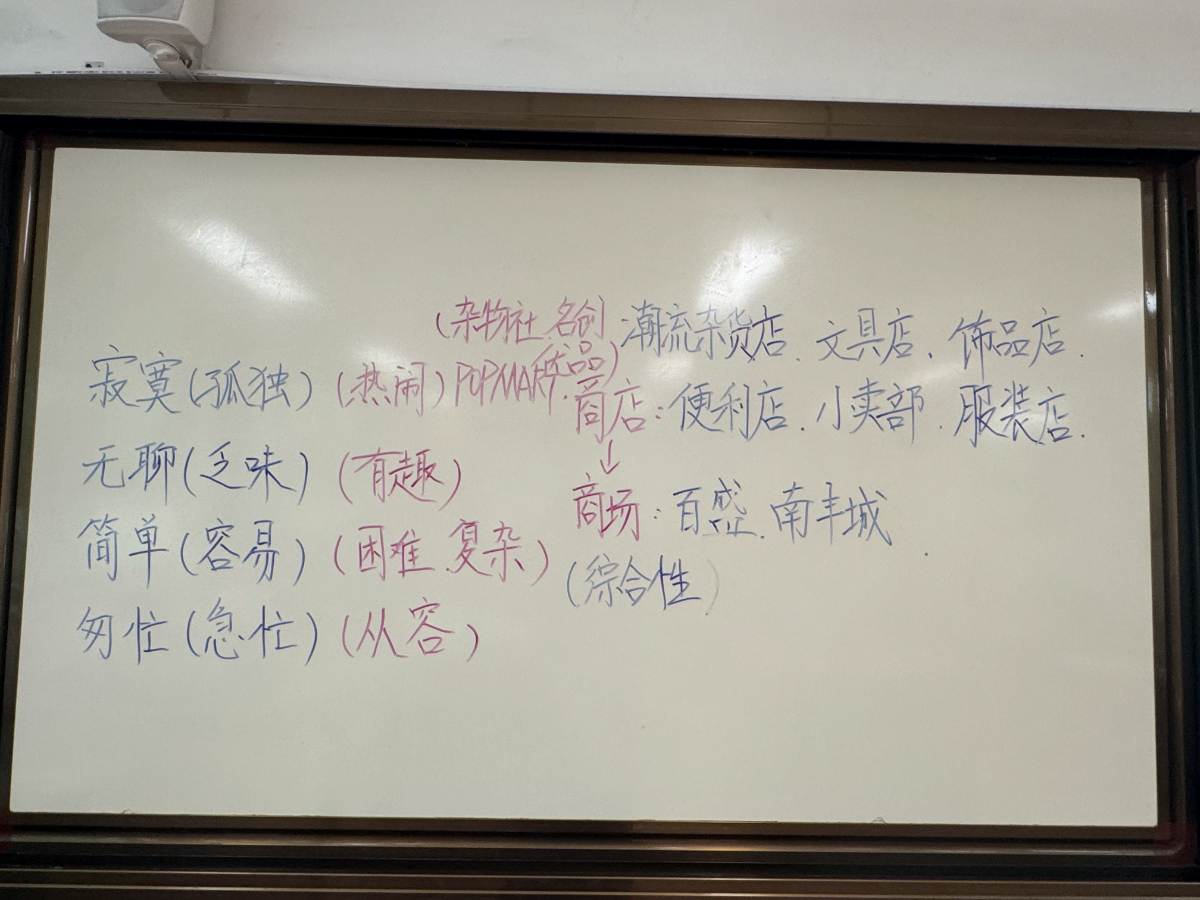 (杂物社、名创优品) 潮流杂货店、文具店、饰品店、
寂寞(孤独) (热闹) POPMART、
商店:便利店、小卖部、服装店、
无聊(乏味) (有趣)
↓
商场:百盛、南丰城
简单(容易) (困难、复杂)
(综合性)
匆忙(急忙) (从容)